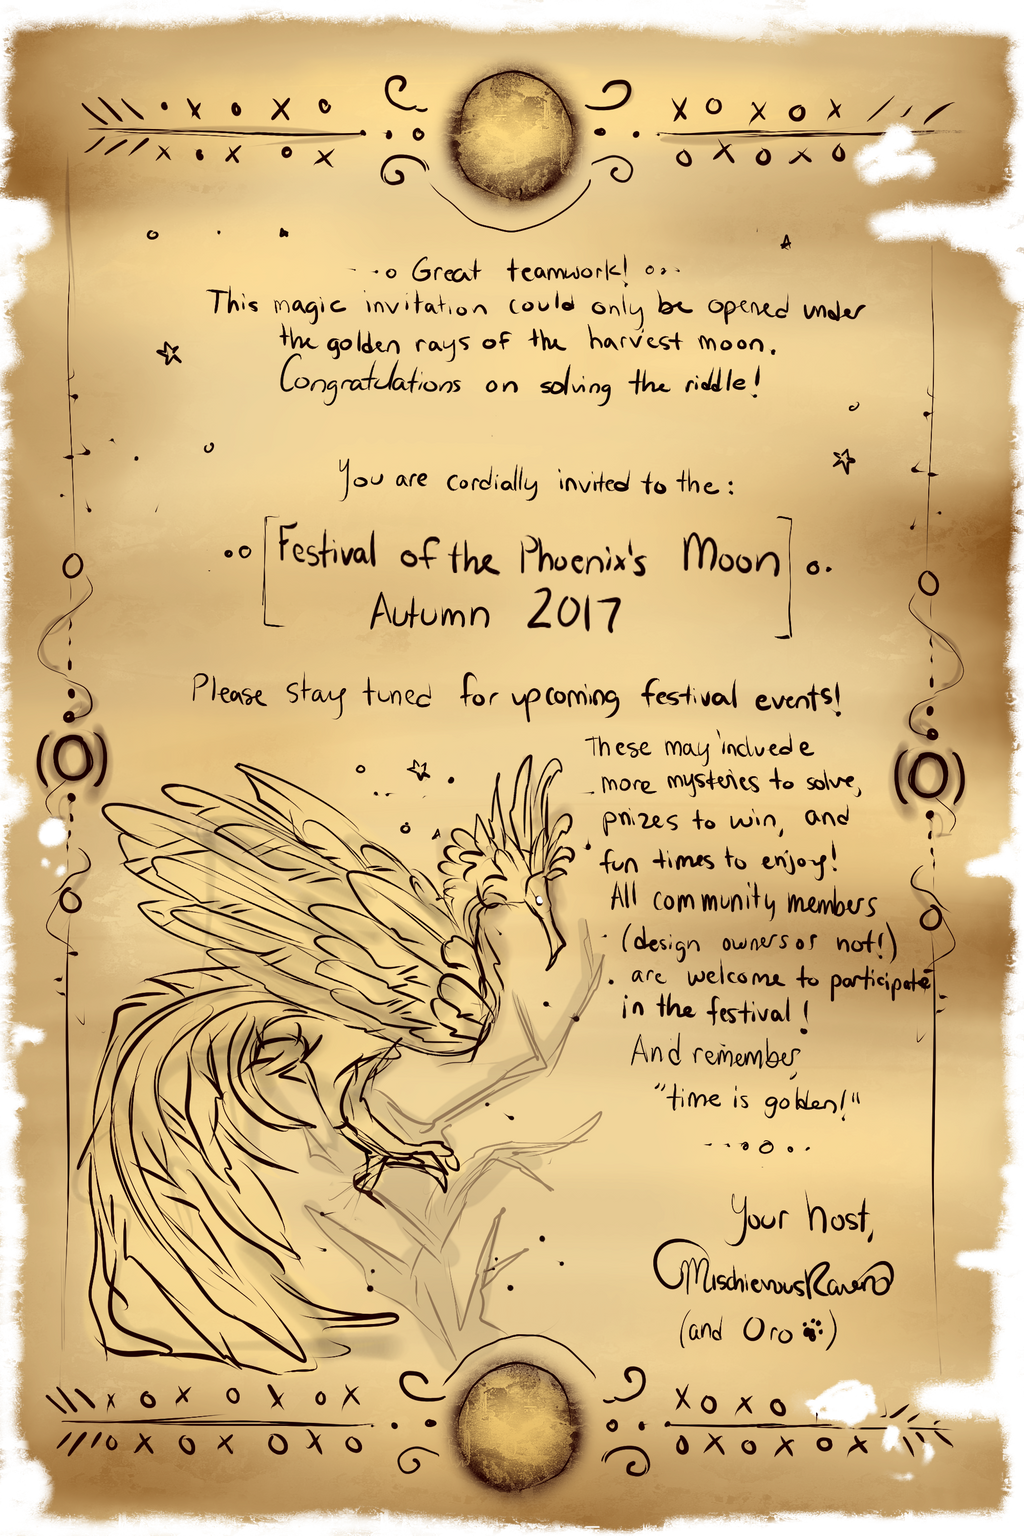 Great teamwork!
This magic invitation could only be opened under
the golden rays of the harvest moon.
Congratulations on solving the riddle!
You are cordially invited to the:
[Festival of the Phoenix's Moon
Autumn 2017]
Please stay tuned for upcoming festival events!
These may incluede
more mysteries to solve,
prizes to win, and
fun times to enjoy!
All community members
(design owners or not!)
are welcome to participate
in the festival!
And remember,
"time is golden!"
Your host,
MischievousRaven
(and Oro)